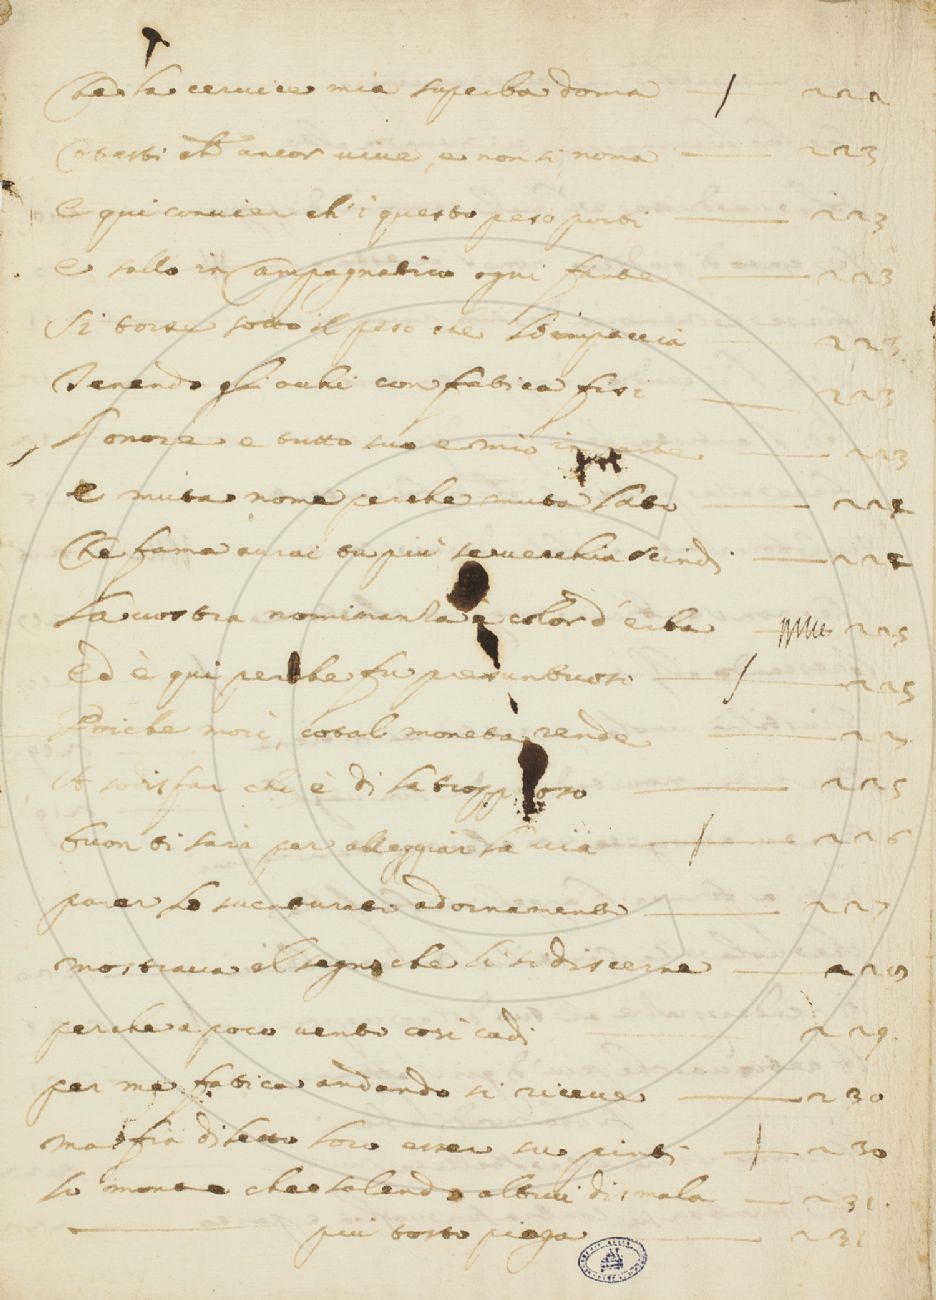 Che la ceruice mia superba doma — / 222
Cotesti ch' ancor uiue, e non si noma — 223
E qui conuien ch' i questo peso porti — 223
e sallo in Campagnatico ogni fante — 223
Si torse sotto il peso che l'impaccia — 223
Tenendo gl' ochi con fatica fisi — 223
L'onore e tutto suo e mio in parte — 223
e muta nome perche muta lato — 224
Che fama aurai tu più se uecchia scindi — 224
La uostra nominanza e color d'erba — 225
Ed è qui perche fu presuntuoso — / 225
Poiche morì, cotal moneta rende — 225
A sodisfar chi è di là tropp oso — 225
buon ti sarà per alleggiar la uia — / 226
parer lo suenturato adornamento — 227
mostraua il segno che lì si discerne —
perche a poco uento così cadi — 229
per me fatica andando si riceue — 230
ma fia diletto loro esser su pinti — / 230
lo monte che salendo altrui dismala — 231
— più tosto piega — 231